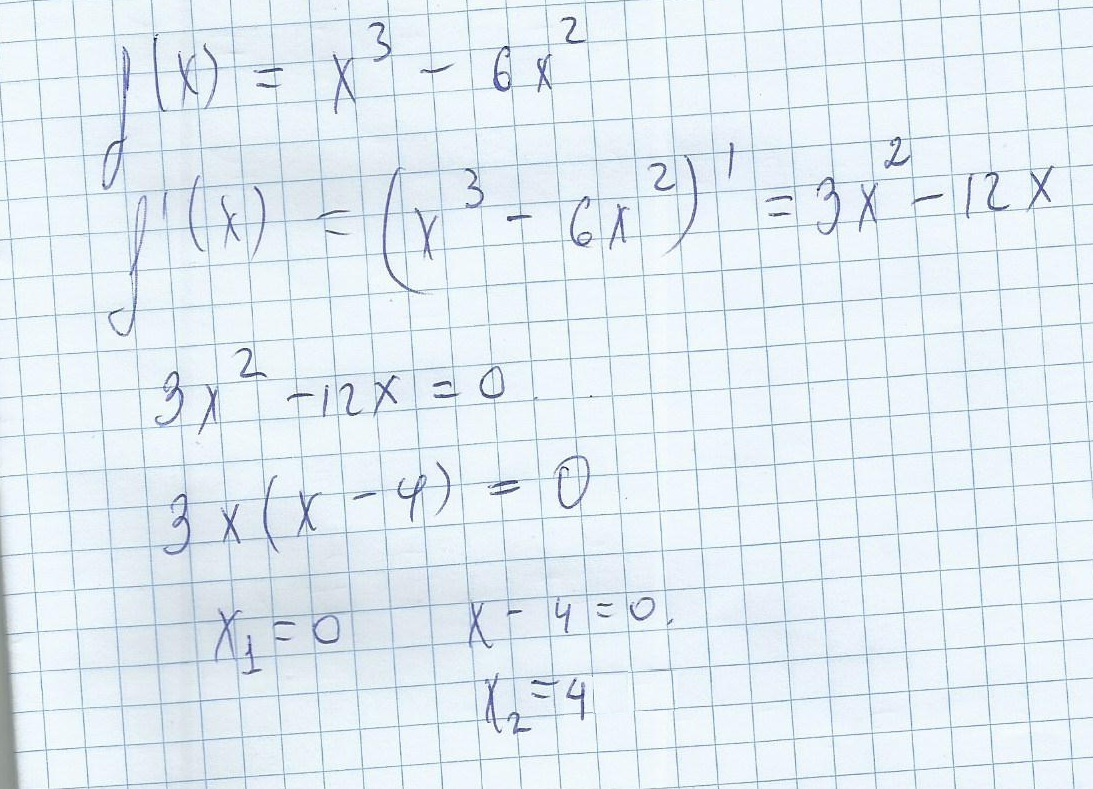 f(x) = x³ - 6x²
f'(x) = (x³ - 6x²)' = 3x² - 12x
3x² - 12x = 0
3x(x - 4) = 0
x₁ = 0 x - 4 = 0.
x₂ = 4